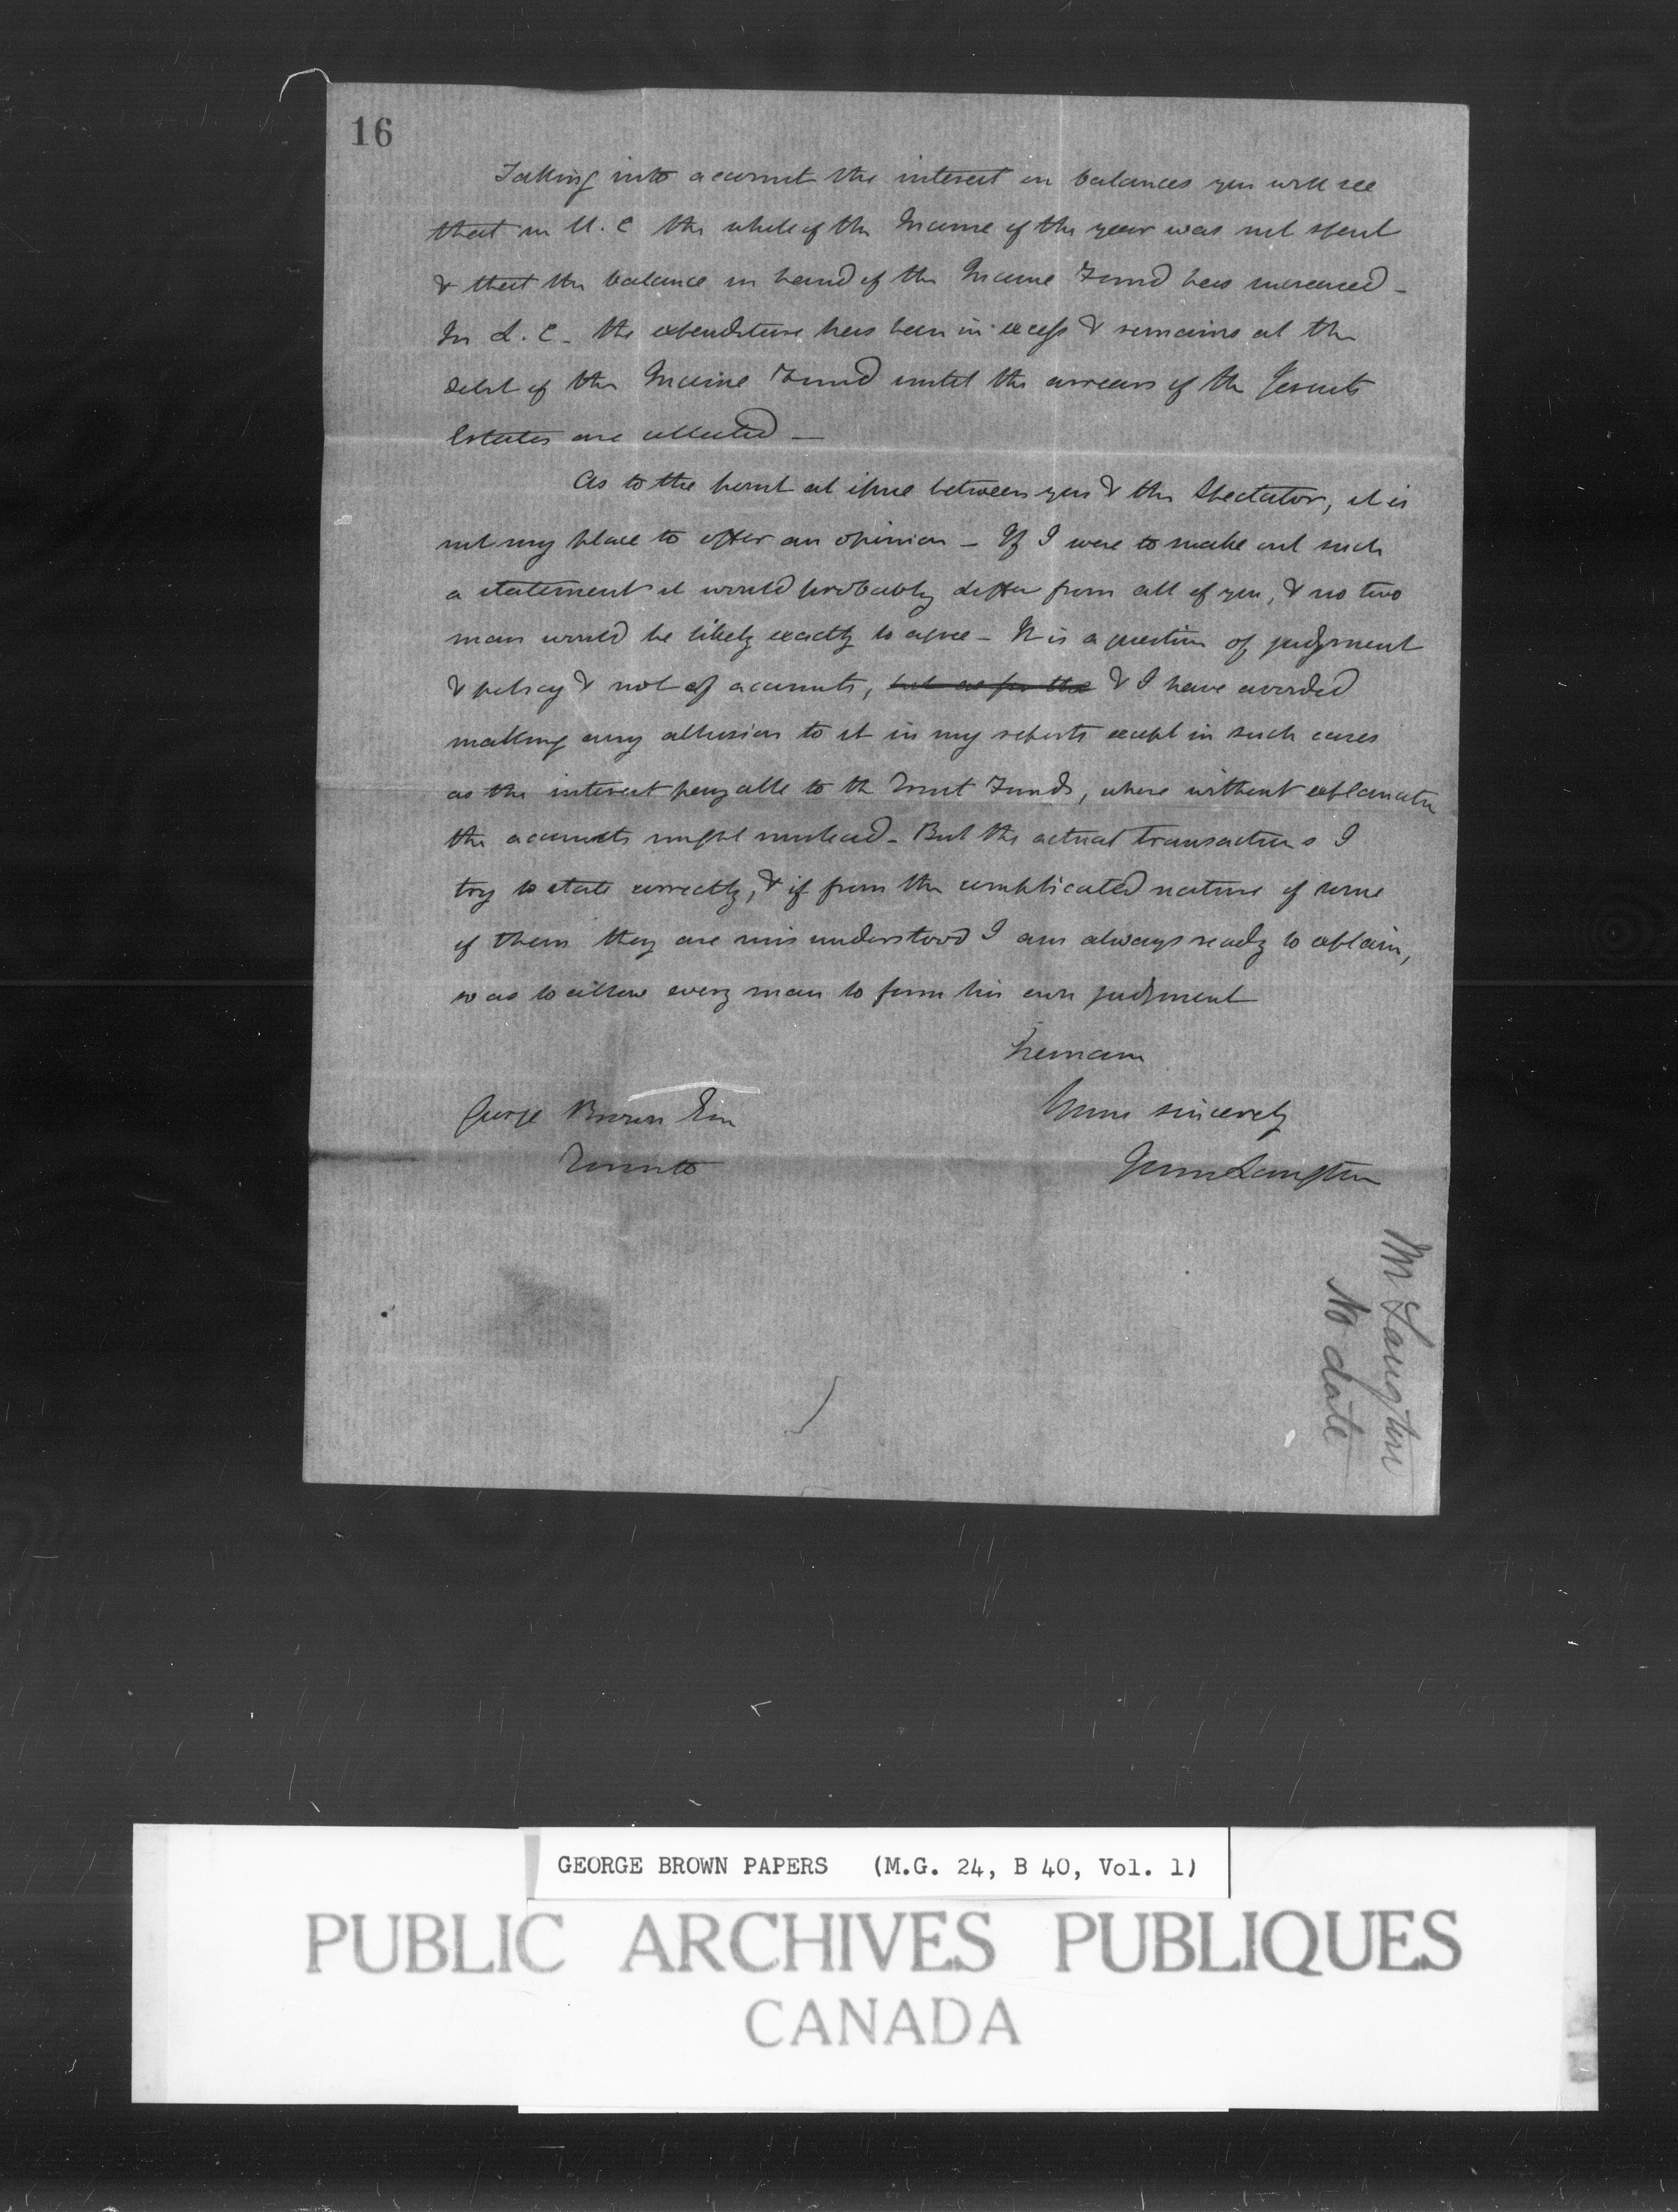 16
Taking into account the interest on balances you will see
that in U. C the whole of the Income of the year was not spent
& that the balance in hand of the Income Fund has increased -
In L. C. the expenditure has been in excess & remains at the
debt of the Income Fund until the arrears of the Jesuits
Estates are collected —
As to the point at issue between you & the Spectator, it is
not my place to offer an opinion - If I were to make out such
a statement it would probably differ from all of you, & no two
men would be likely exactly to agree - It is a question of judgment
& policy & not of accounts, but as for the & I have avoided
making any allusion to it in my reports except in such cases
as the interest payable to the Trust Funds, where without explanation
the accounts might mislead - But the actual transactions I
try to state correctly, & if from the complicated nature of some
of them they are misunderstood I am always ready to explain,
so as to allow every man to form his own judgment
I remain
Yours sincerely
George Brown Esq
Toronto
John Langton
Mr Langton
No date
GEORGE BROWN PAPERS (M.G. 24, B 40, Vol. 1)
PUBLIC ARCHIVES PUBLIQUES
CANADA